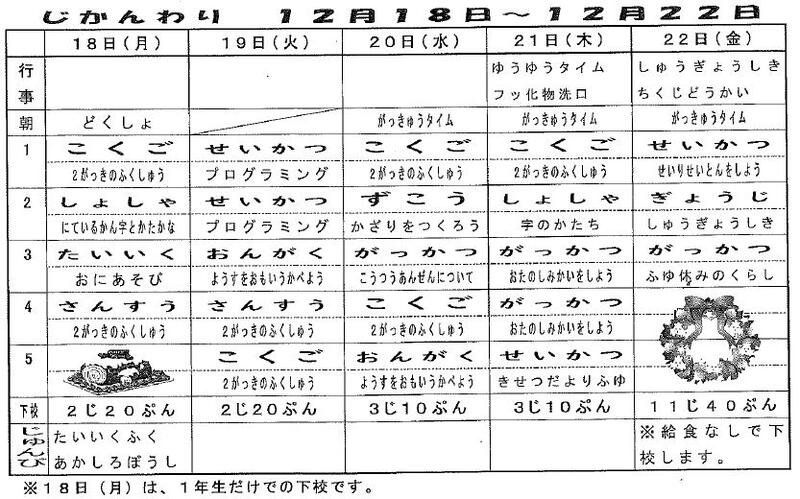 じかんわり　12月18日～12月22日
18日(月) 19日(火) 20日(水) 21日(木) 22日(金)
行事 ゆうゆうタイム しゅうぎょうしき
フッ化物洗口 ちくじどうかい
朝 どくしょ がっきゅうタイム がっきゅうタイム がっきゅうタイム
1 こくご せいかつ こくご こくご せいかつ
2がっきのふくしゅう プログラミング 2がっきのふくしゅう 2がっきのふくしゅう せいりせいとんをしよう
2 しょしゃ せいかつ ずこう しょしゃ ぎょうじ
にているかん字とかたかな プログラミング かざりをつくろう 字のかたち しゅうぎょうしき
3 たいいく おんがく がっかつ がっかつ がっかつ
おにあそび ようすをおもいうかべよう こうつうあんぜんについて おたのしみかいをしよう ふゆ休みのくらし
4 さんすう さんすう こくご がっかつ
2がっきのふくしゅう 2がっきのふくしゅう 2がっきのふくしゅう おたのしみかいをしよう
5 こくご おんがく せいかつ
2がっきのふくしゅう ようすをおもいうかべよう きせつだよりふゆ
下校 2じ20ぷん 2じ20ぷん 3じ10ぷん 3じ10ぷん 11じ40ぷん
じゅんび たいいくふく ※給食なしで下
あかしろぼうし 校します。
※18日(月)は、1年生だけでの下校です。